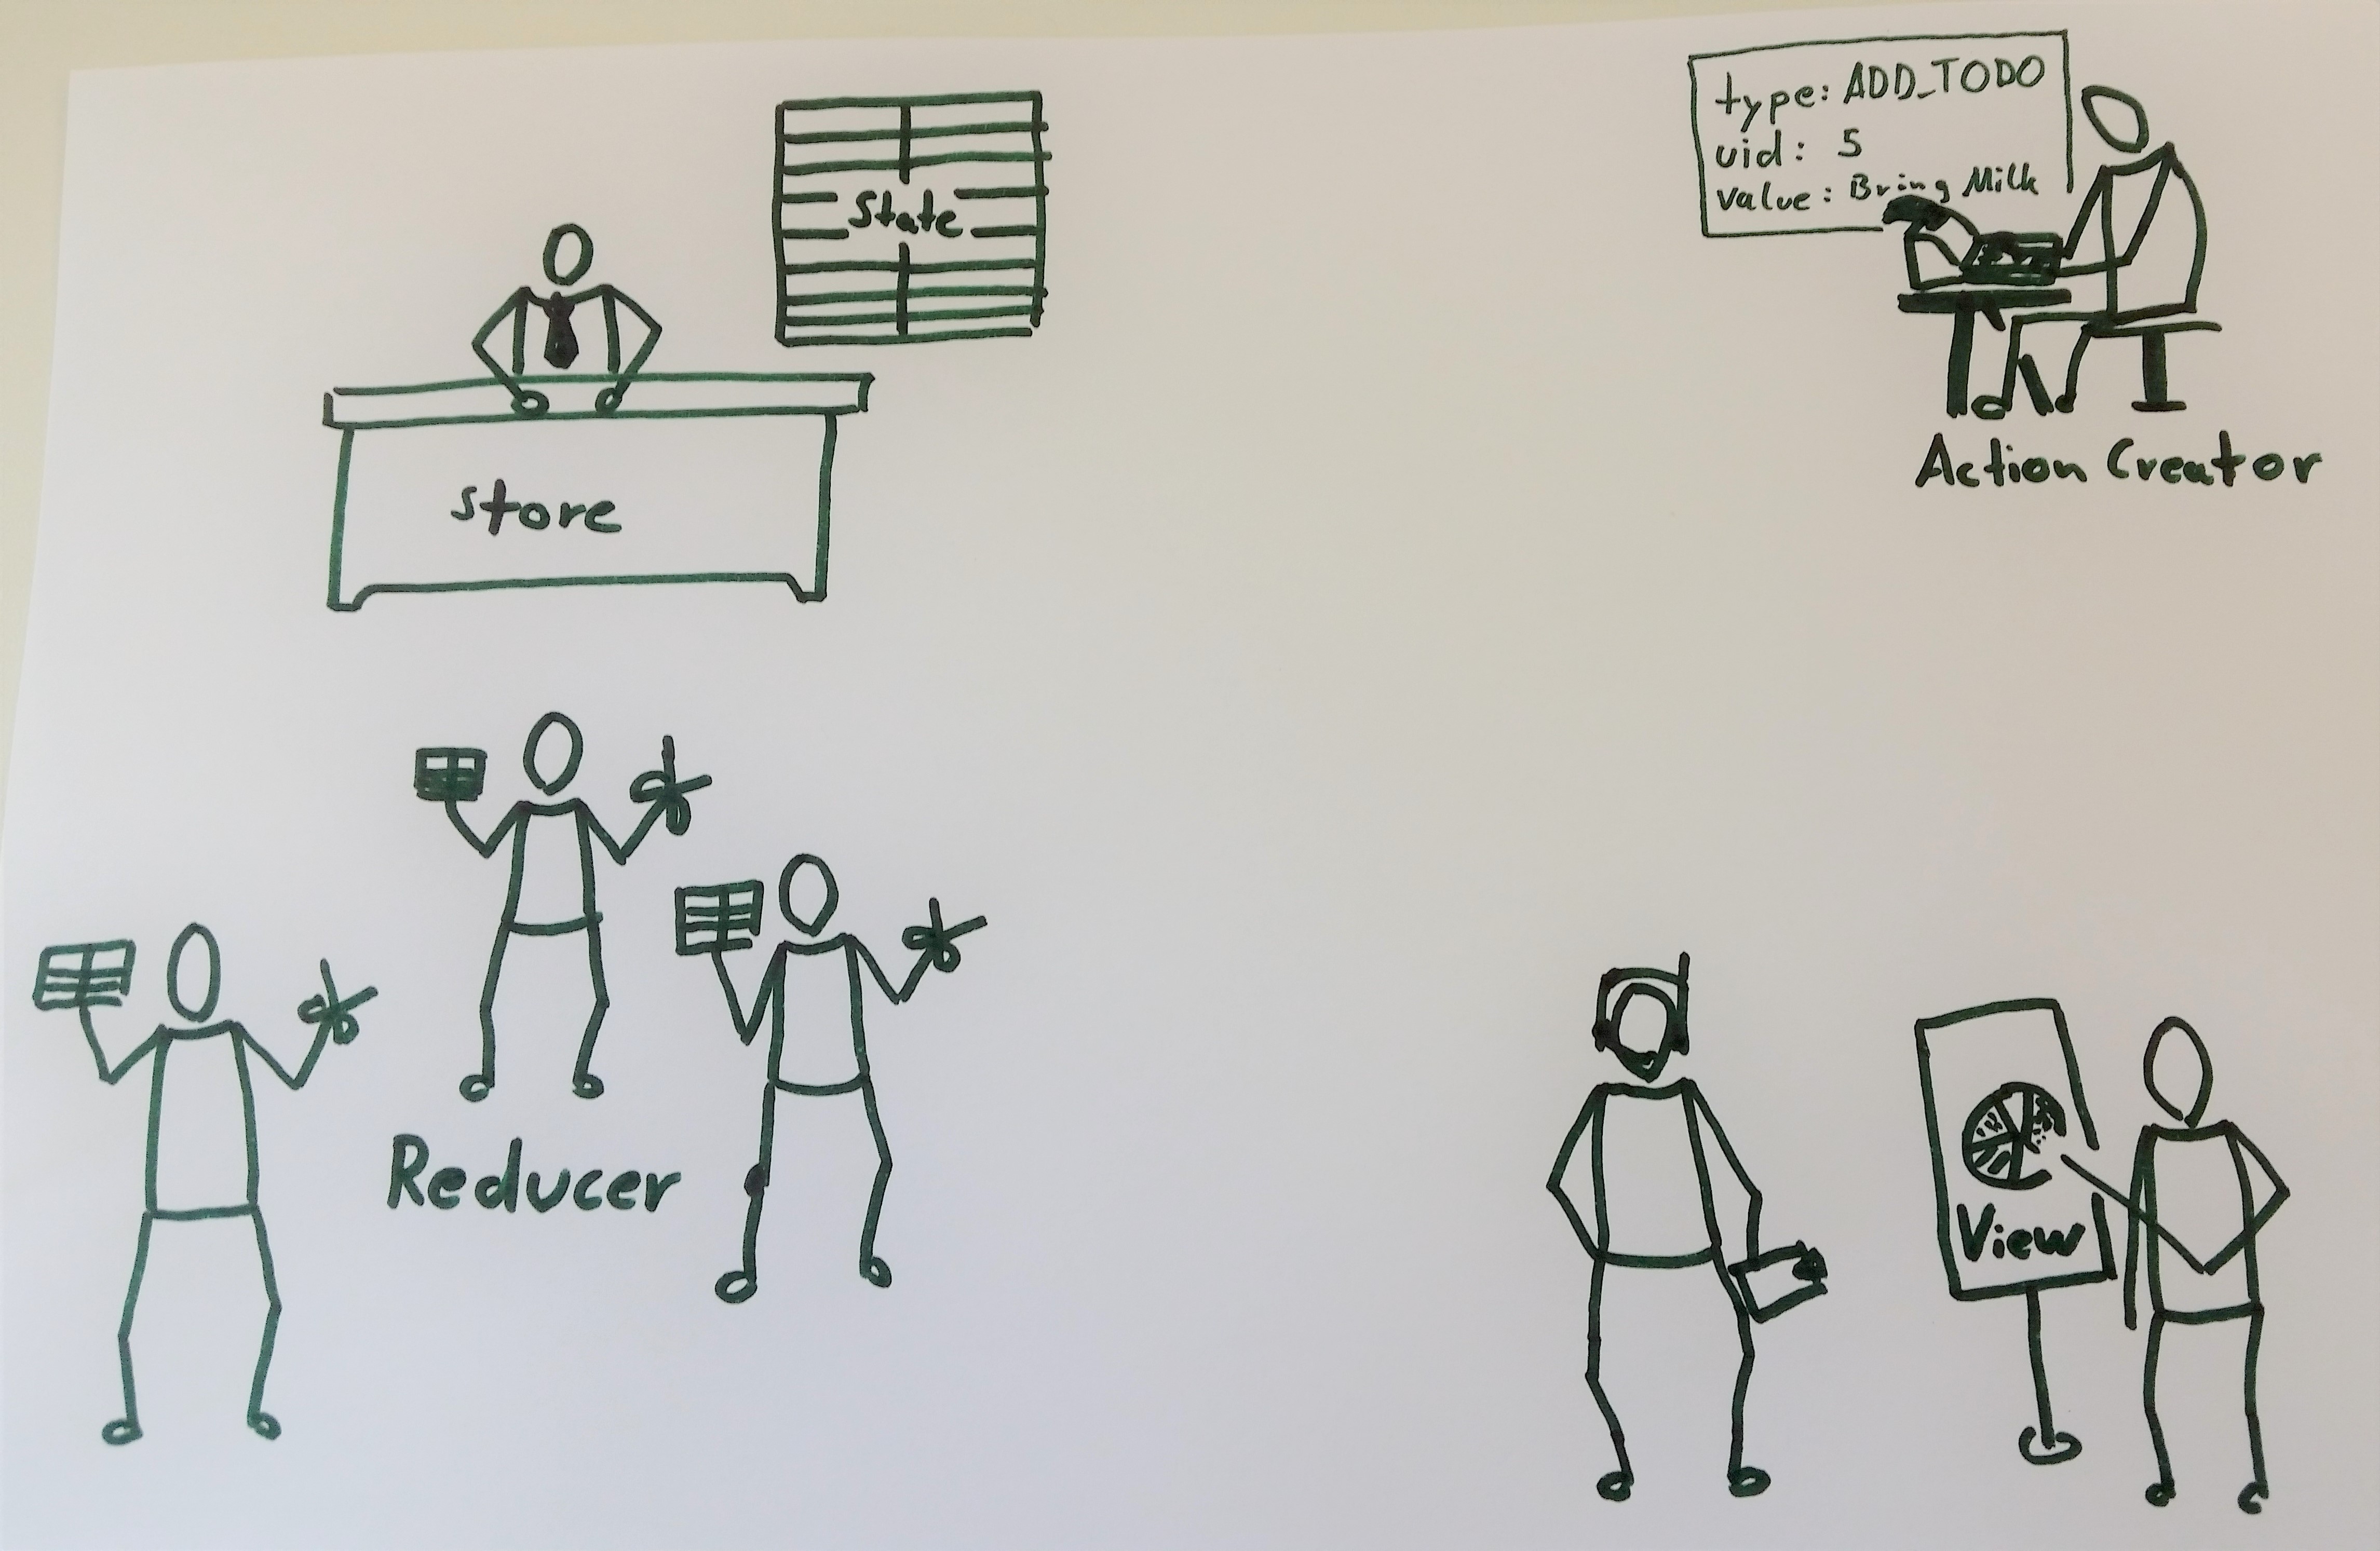 State
store
type: ADD_TODO
uid: 5
value: Bring Milk
Action Creator
Reducer
View